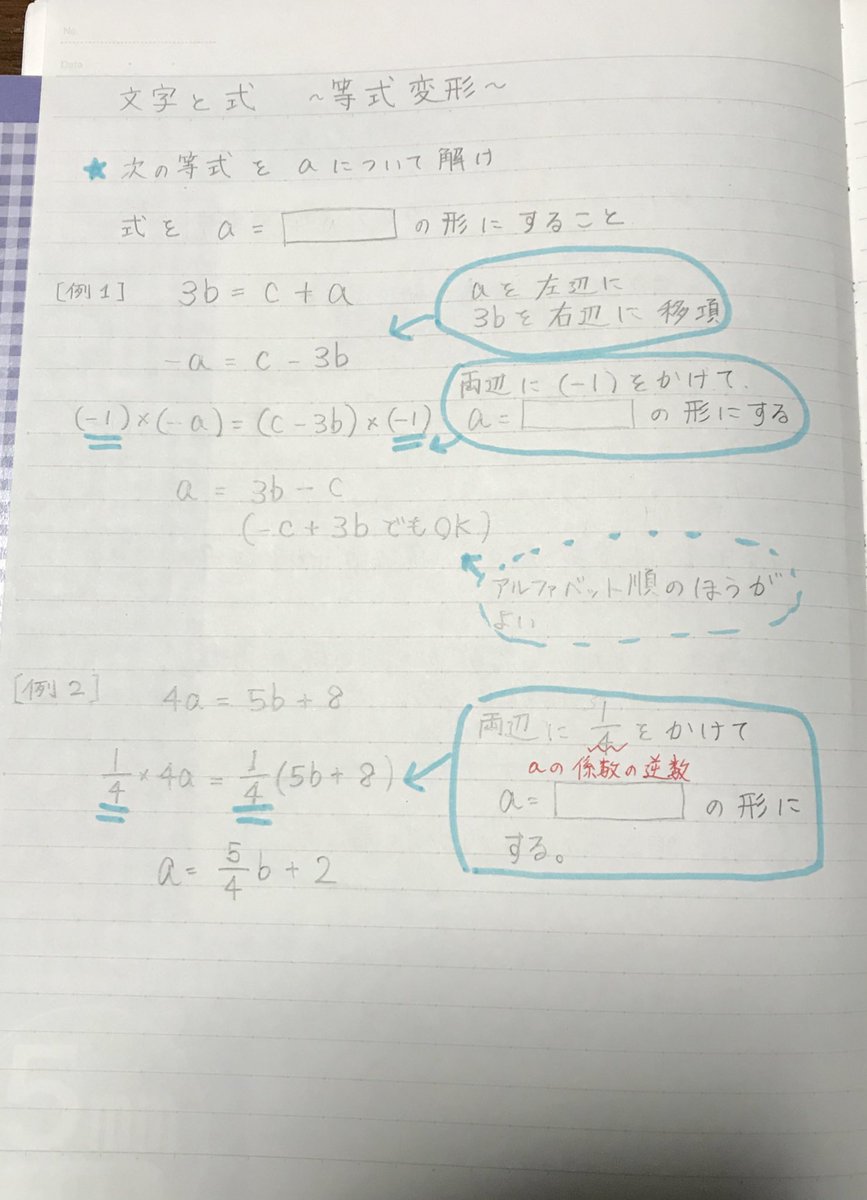 No.
Date
文字と式　〜等式変形〜
★ 次の等式を aについて解け
式を a = □ の形にすること
[例1] 3b = c + a
aを左辺に
3bを右辺に移項
-a = c - 3b
両辺に(-1)をかけて、
a = □ の形にする
(-1)×(-a) = (c - 3b)×(-1)
a = 3b - c
(-c + 3b でもOK)
アルファベット順のほうが
よい
[例2] 4a = 5b + 8
両辺に 1/4 をかけて
aの係数の逆数
a = □ の形に
する。
1/4 × 4a = 1/4 (5b + 8)
a = 5/4 b + 2